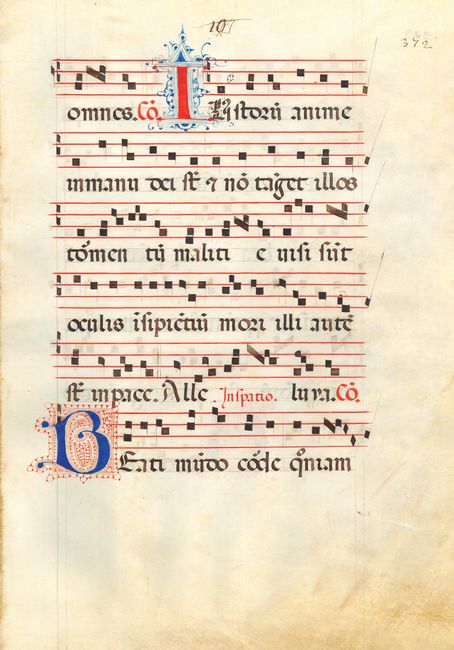 107
372
omnes. Cō. I Ustorū anime
inmanu dei st̄ ⁊ nō tāget illos
tōmen tū maliti e visi sūt
oculis īsipiētiū mori illi autē
st̄ inpace. Alle In spatio. luya. Cō.
BEati mūdo cōde qm̄niam